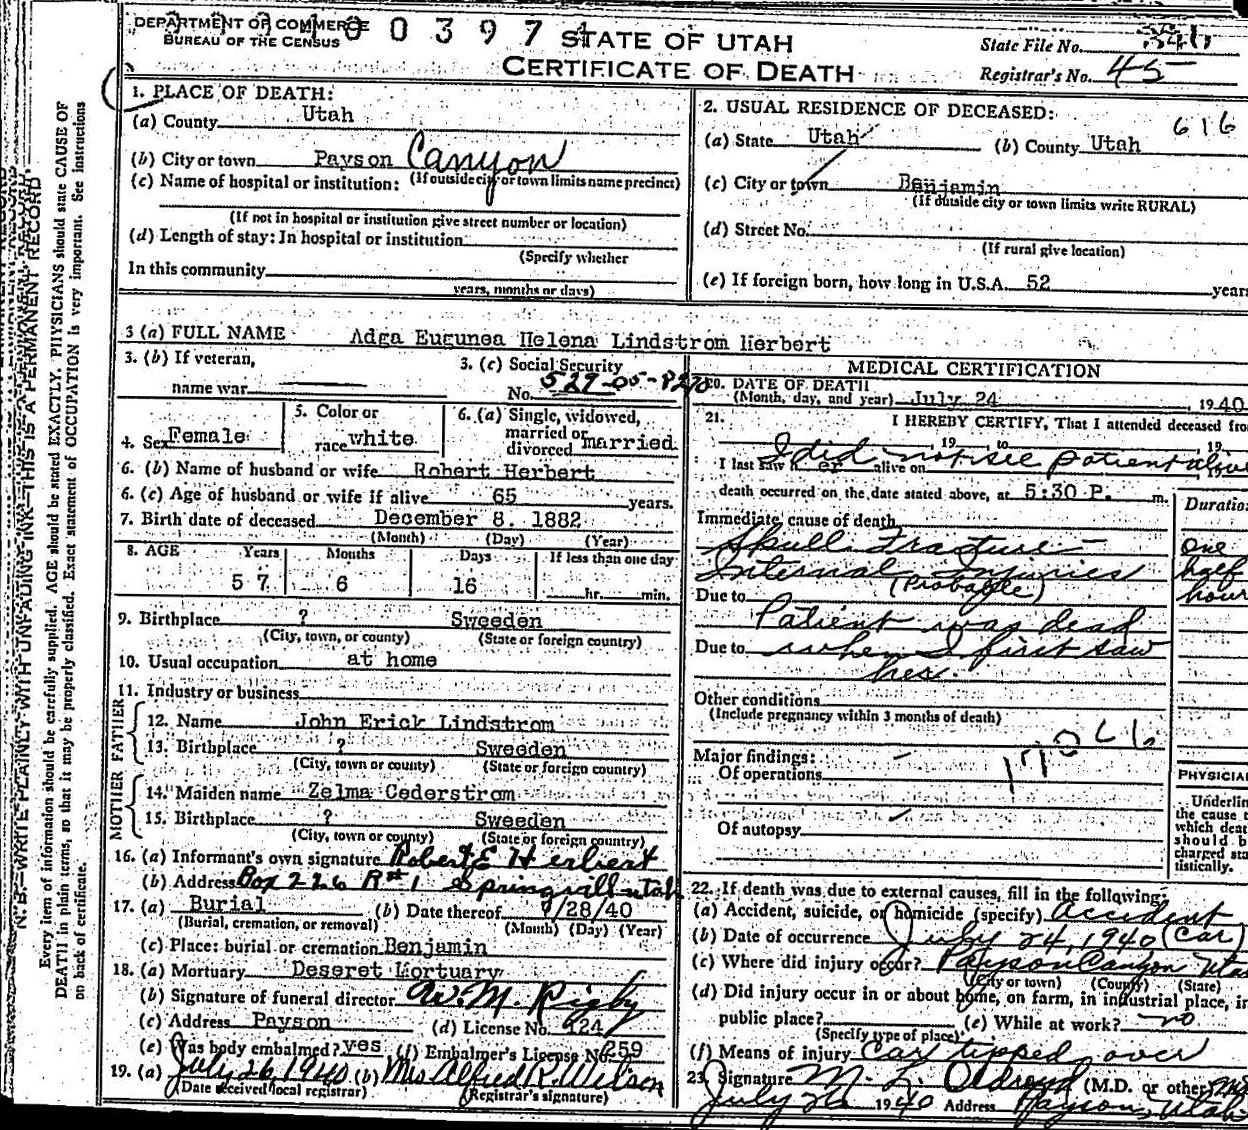 DEPARTMENT OF COMMERCE
BUREAU OF THE CENSUS
0 0 3 9 7
STATE OF UTAH
CERTIFICATE OF DEATH
State File No.
Registrar's No. 45
1. PLACE OF DEATH:
(a) County Utah
(b) City or town Payson Canyon
(If outside city or town limits name precinct)
(c) Name of hospital or institution:
(If not in hospital or institution give street number or location)
(d) Length of stay: In hospital or institution
(Specify whether
In this community
years, months or days)
2. USUAL RESIDENCE OF DECEASED:
616
(a) State Utah (b) County Utah
(c) City or town Benjamin
(If outside city or town limits write RURAL)
(d) Street No.
(If rural give location)
(e) If foreign born, how long in U.S.A. 52 years
3 (a) FULL NAME Adga Eugunea Helena Lindstrom Herbert
3. (b) If veteran,
name war
3. (c) Social Security
No. 529-05-8270
4. Sex Female
5. Color or
race white
6. (a) Single, widowed,
married or
divorced married
6. (b) Name of husband or wife Robert Herbert
6. (c) Age of husband or wife if alive 65 years.
7. Birth date of deceased December 8. 1882
(Month) (Day) (Year)
8. AGE Years Months Days If less than one day
57 6 16 hr. min.
9. Birthplace ? Sweeden
(City, town, or county) (State or foreign country)
10. Usual occupation at home
11. Industry or business
FATHER
12. Name John Erick Lindstrom
13. Birthplace ? Sweeden
(City, town or county) (State or foreign country)
MOTHER
14. Maiden name Zelma Cederstrom
15. Birthplace ? Sweeden
(City, town or county) (State or foreign country)
16. (a) Informant's own signature Robert E Herbert
(b) Address Box 226 R#1 Springvill utah
17. (a) Burial (b) Date thereof 7/28/40
(Burial, cremation, or removal) (Month) (Day) (Year)
(c) Place: burial or cremation Benjamin
18. (a) Mortuary Deseret Mortuary
(b) Signature of funeral director W. M. Rigby
(c) Address Payson (d) License No. 224
(e) Was body embalmed? yes (f) Embalmer's License No. 259
19. (a) July 26 1940 (b) Mrs Alfred R. Wilson
(Date received local registrar) (Registrar's signature)
MEDICAL CERTIFICATION
20. DATE OF DEATH
(Month, day, and year) July 24, 1940
21. I HEREBY CERTIFY, That I attended deceased from
19 to 19
I last saw h er alive on I did not see patient alive 19
death occurred on the date stated above, at 5:30 P. m.
Duration
Immediate cause of death
Skull Fracture - one
Internal Injuries half
Due to (Probable) hour
Patient was dead
Due to when I first saw
her.
Other conditions
(Include pregnancy within 3 months of death)
Major findings:
Of operations
Of autopsy
PHYSICIAN
Underline
the cause t
which deat
should b
charged sta
tistically.
22. If death was due to external causes, fill in the following:
(a) Accident, suicide, or homicide (specify) Accident
(b) Date of occurrence July 24, 1940 (Car)
(c) Where did injury occur? Payson Canyon Utah
(City or town) (County) (State)
(d) Did injury occur in or about home, on farm, in industrial place, in
public place? (e) While at work? no
(Specify type of place)
(f) Means of injury Car tipped over
23. Signature M. L. Oldroyd (M.D. or other)
July 26 1940 Address Payson, Utah
N. B.—WRITE PLAINLY WITH UNFADING INK—THIS IS A PERMANENT RECORD.
Every item of information should be carefully supplied. AGE should be stated EXACTLY. PHYSICIANS should state CAUSE OF
DEATH in plain terms, so that it may be properly classified. Exact statement of OCCUPATION is very important. See instructions
on back of certificate.